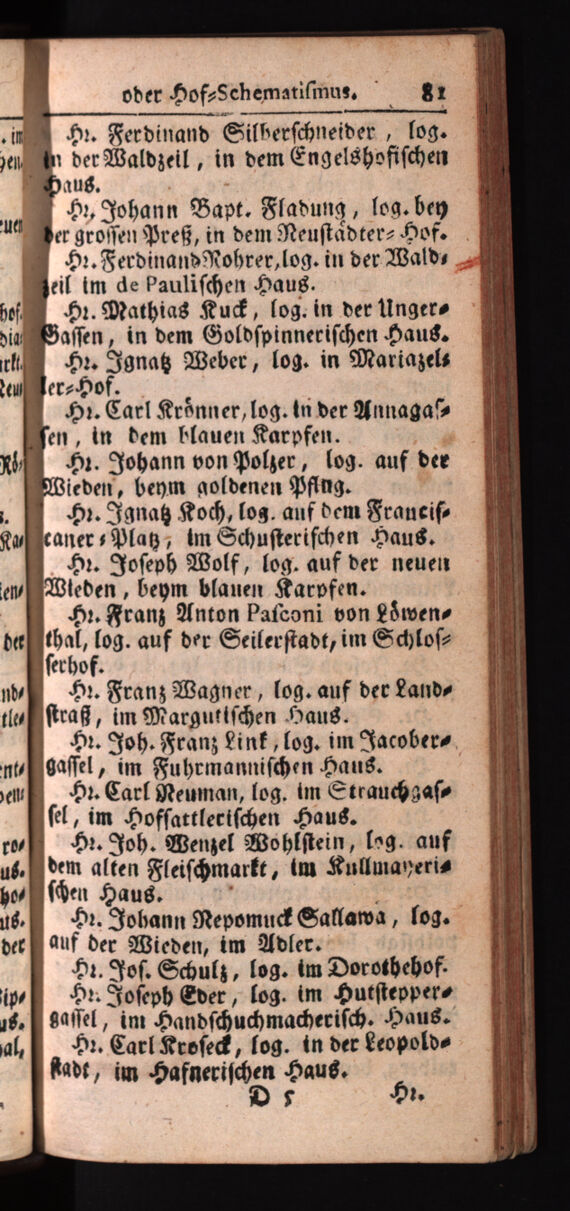 oder Hof-Schematismus. 81
Hr. Ferdinand Silberschneider, log.
in der Waldzeil, in dem Engelshofischen
Haus.
Hr. Johann Bapt. Fladung, log. bey
der grossen Preß, in dem Neustädter-Hof.
Hr. Ferdinand Rohrer, log. in der Wald-
zeil im de Paulischen Haus.
Hr. Mathias Kuck, log. in der Unger-
Gassen, in dem Goldspinnerischen Haus.
Hr. Ignatz Weber, log. in Mariazel-
ler-Hof.
Hr. Carl Krönner, log. in der Annagas-
sen, in dem blauen Karpfen.
Hr. Johann von Polzer, log. auf der
Wieden, beym goldenen Pflug.
Hr. Ignatz Koch, log. auf dem Francis-
caner-Platz, im Schusterischen Haus.
Hr. Joseph Wolf, log. auf der neuen
Wieden, beym blauen Karpfen.
Hr. Franz Anton Pasconi von Löwen-
thal, log. auf der Seilerstadt, im Schlos-
serhof.
Hr. Franz Wagner, log. auf der Land-
straß, im Margutischen Haus.
Hr. Joh. Franz Link, log. im Jacober-
gassel, im Fuhrmannischen Haus.
Hr. Carl Neuman, log. im Strauchgas-
sel, im Hofsattlerischen Haus.
Hr. Joh. Wenzel Wohlstein, log. auf
dem alten Fleischmarkt, im Kullmayeri-
schen Haus.
Hr. Johann Nepomuck Sallawa, log.
auf der Wieden, im Adler.
Hr. Jos. Schulz, log. im Dorothehof.
Hr. Joseph Eder, log. im Hutstepper-
gassel, im Handschuchmacherisch. Haus.
Hr. Carl Kroseck, log. in der Leopold-
stadt, im Hafnerischen Haus.
D 5 Hr.